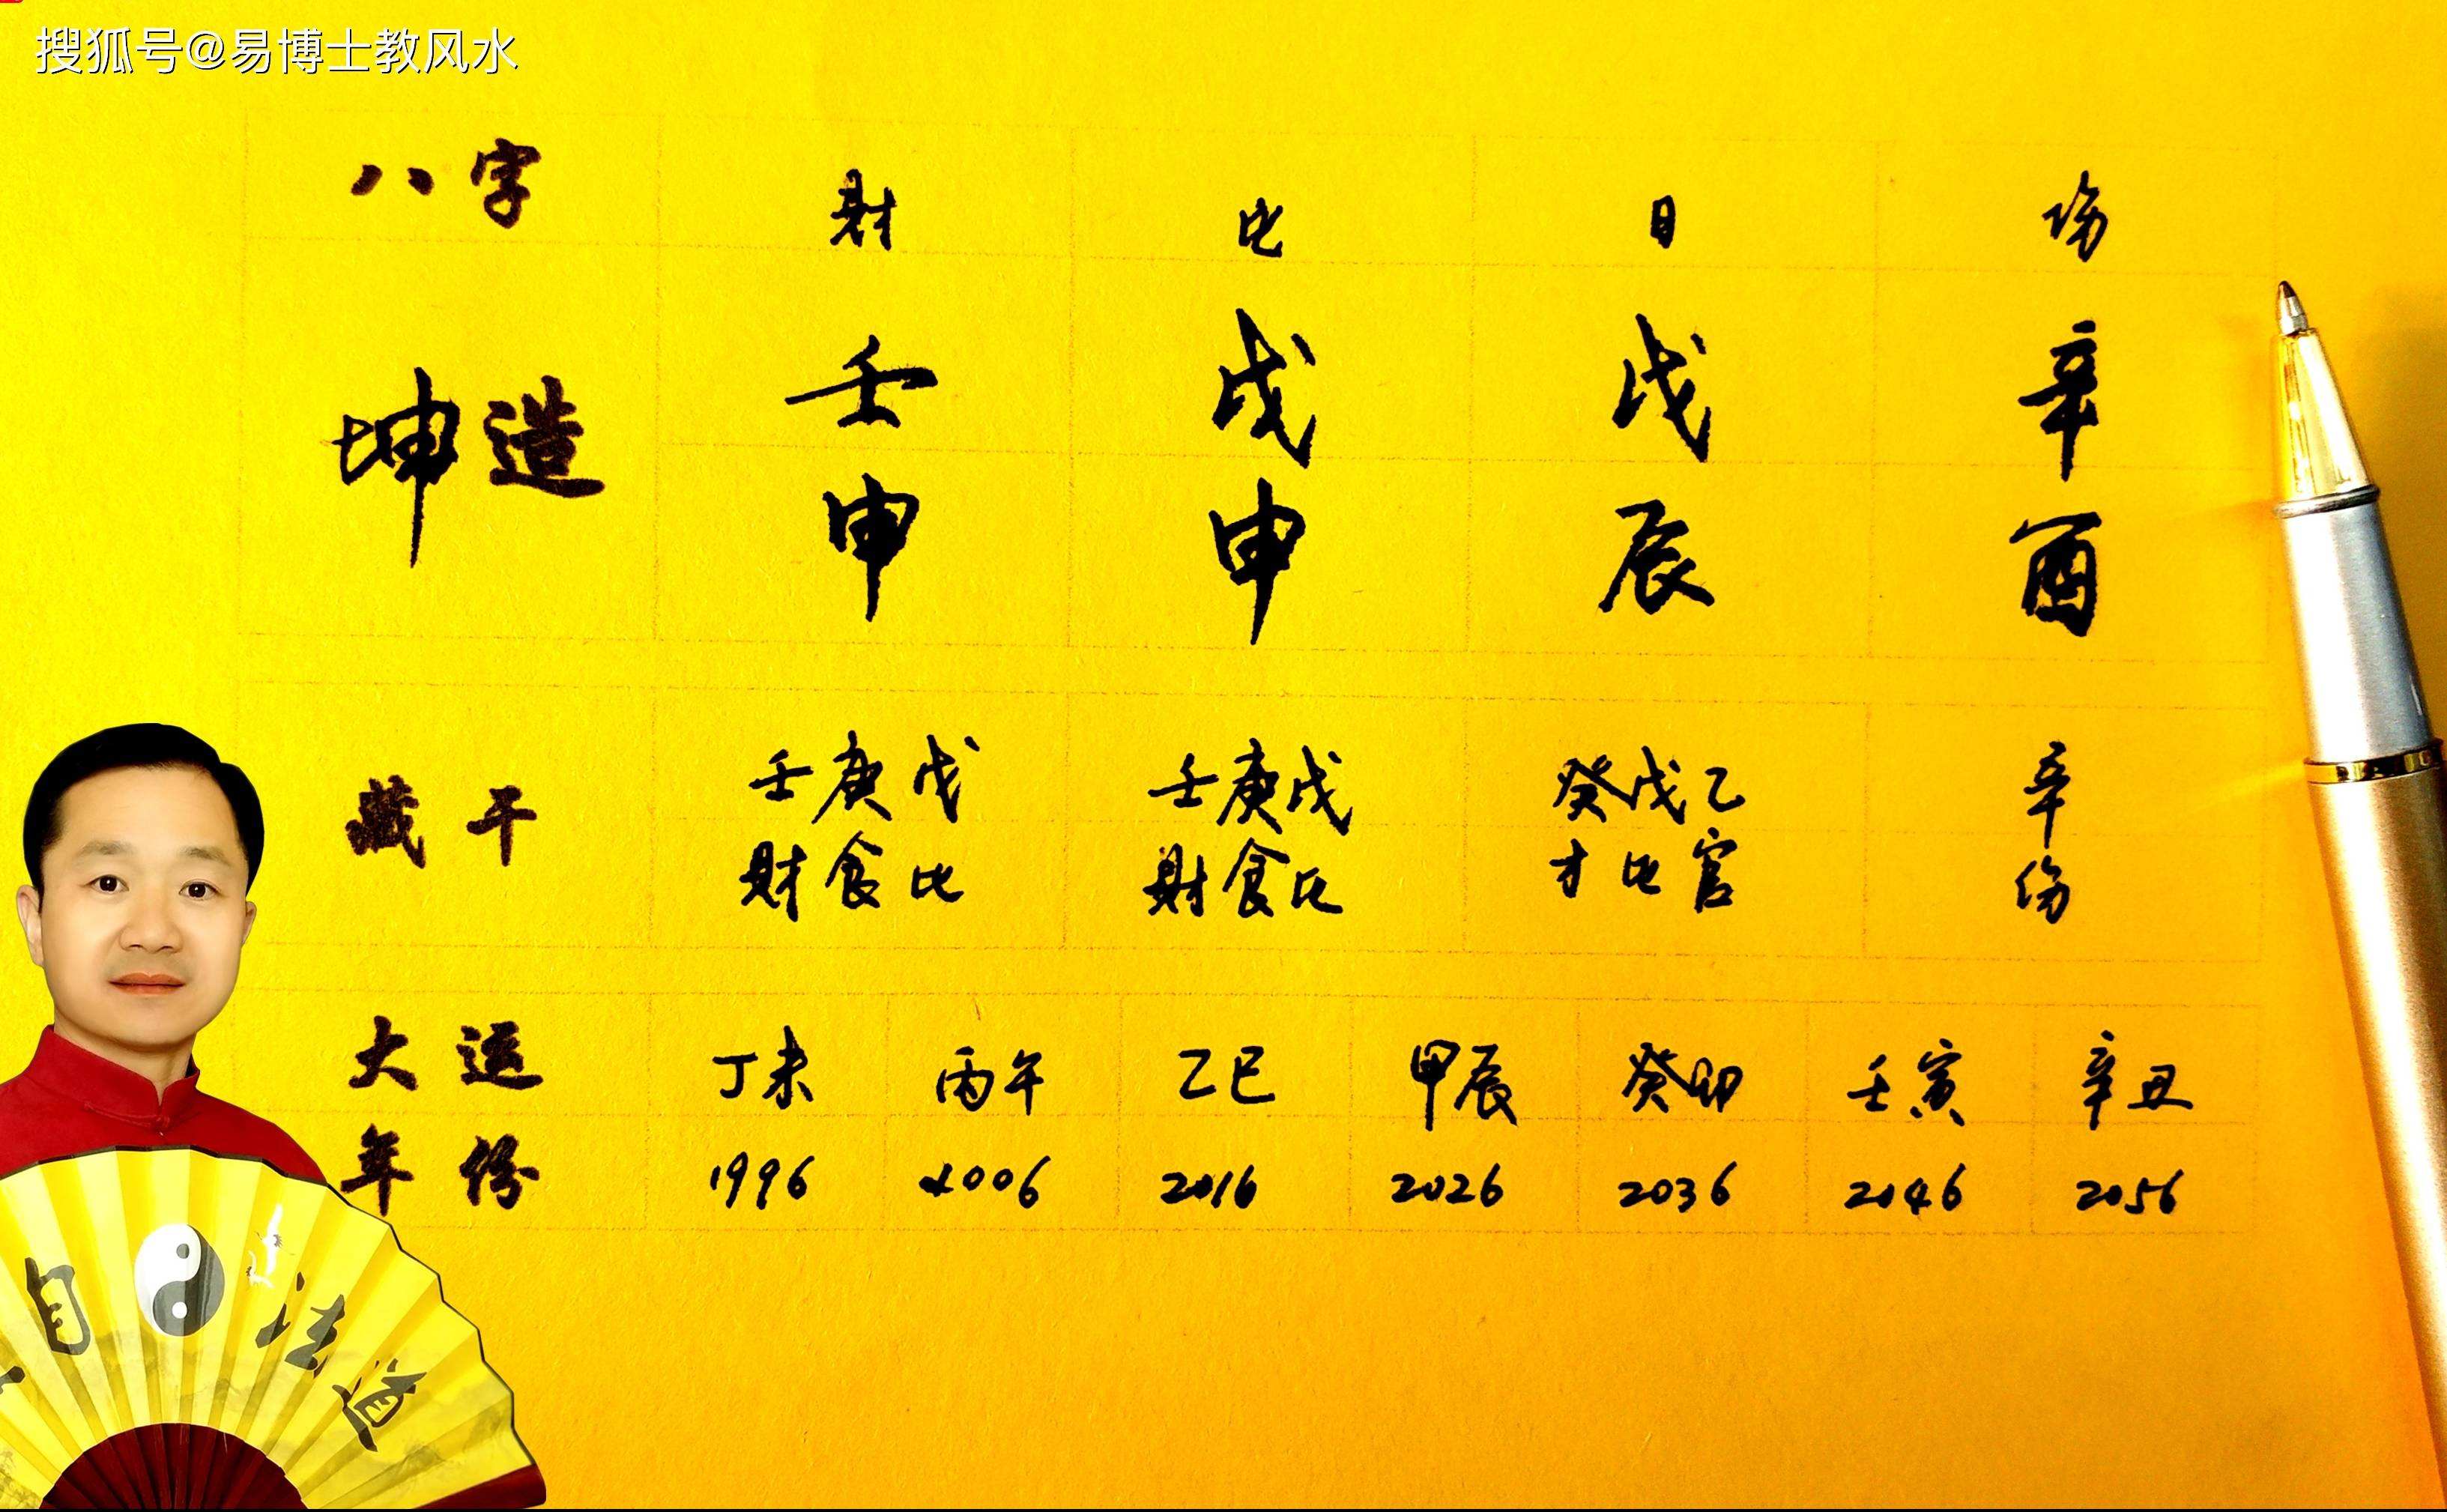 搜狐号@易博士教风水
八字 财 比 日 伤
坤造 壬 戊 戊 辛
申 申 辰 酉
藏干 壬庚戊 壬庚戊 癸戊乙 辛
财食比 财食比 才比官 伤
大运 丁未 丙午 乙巳 甲辰 癸卯 壬寅 辛丑
年份 1996 2006 2016 2026 2036 2046 2056
自法道